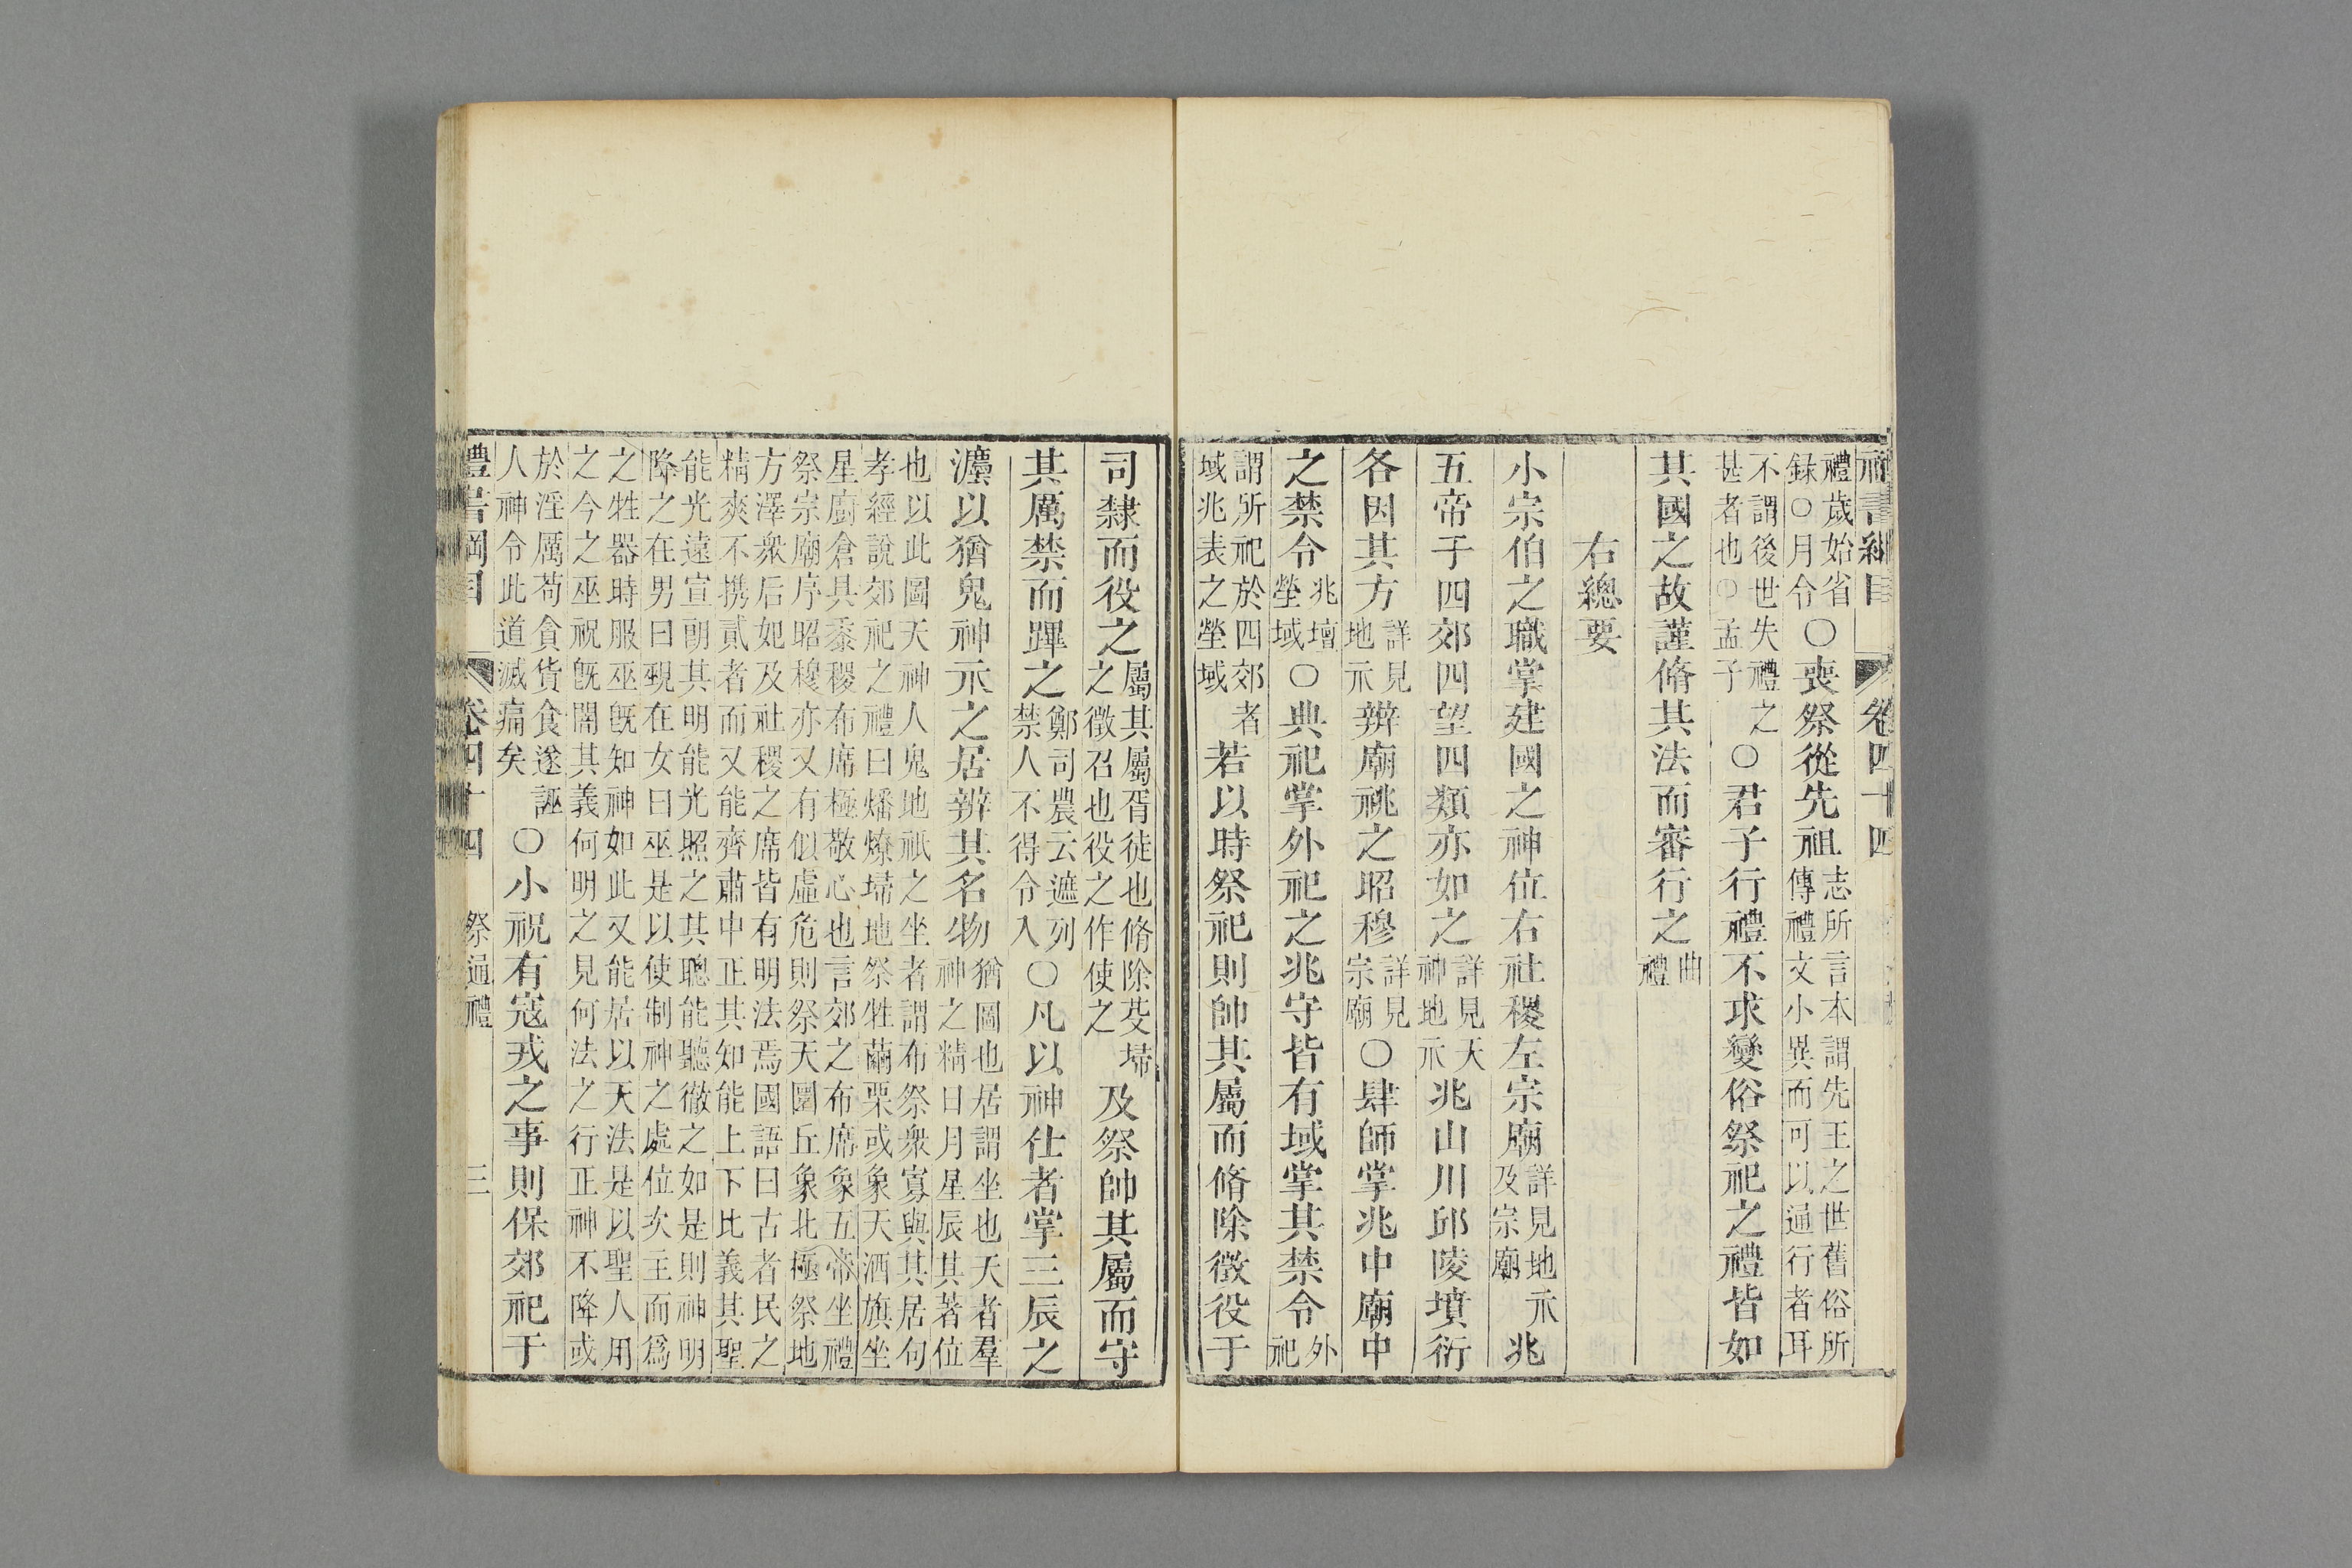 禮書綱目 卷四十四
禮歲始省錄○月令○喪祭從先祖志所言本謂先王之世舊俗所傳禮文小異而可以通行者耳
不謂後世失禮之甚者也○孟子○君子行禮不求變俗祭祀之禮皆如
其國之故謹脩其法而審行之曲禮
右總要
小宗伯之職掌建國之神位右社稷左宗廟詳見地示及宗廟兆
五帝于四郊四望四類亦如之詳見天神地示兆山川邱陵墳衍
各因其方詳見地示辨廟祧之昭穆詳見宗廟○肆師掌兆中廟中
之禁令兆壇塋域○典祀掌外祀之兆守皆有域掌其禁令外祀
謂所祀於四郊者域兆表之塋域若以時祭祀則帥其屬而脩除徵役于
司隸而役之屬其屬胥徒也脩除芟埽之徵召也役之作使之及祭帥其屬而守
其厲禁而蹕之鄭司農云遮列禁人不得令入○凡以神仕者掌三辰之
灋以猶鬼神示之居辨其名物猶圖也居謂坐也天者羣神之精日月星辰其著位
也以此圖天神人鬼地祇之坐者謂布祭衆寡與其居句孝經說郊祀之禮曰燔燎埽地祭牲繭栗或象天酒旗坐
星廚倉具黍稷布席極敬心也言郊之布席象五帝坐禮祭宗廟序昭穆亦又有似虛危則祭天圜丘象北極祭地
方澤衆后妃及社稷之席皆有明法焉國語曰古者民之精爽不攜貳者而又能齊肅中正其知能上下比義其聖
能光遠宣朗其明能光照之其聰能聽徹之如是則神明降之在男曰覡在女曰巫是以使制神之處位次主而爲
之牲器時服巫既知神如此又能居以天法是以聖人用之今之巫祝既闇其義何明之見何法之行正神不降或
於淫厲苟貪貨食遂誣人神令此道滅痛矣○小祝有寇戎之事則保郊祀于
禮書綱目 卷四十四 祭通禮 三